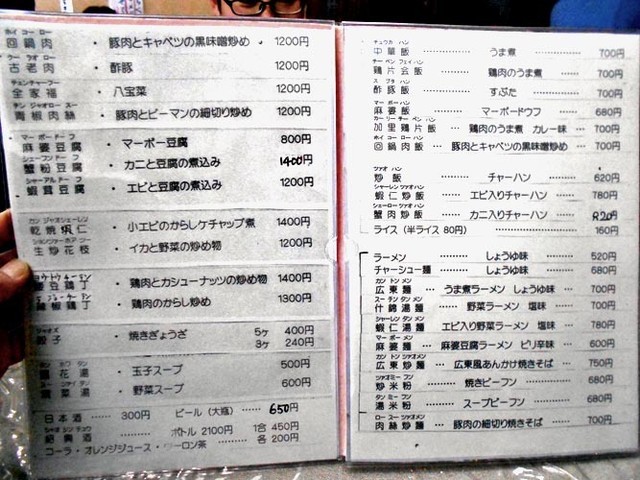 ホイ コー ロー
回鍋肉 ・ 豚肉とキャベツの黒味噌炒め 1200円
クー ラオ ロー
古老肉 ・ 酢豚 1200円
チェンチャーフー
全家福 ・ 八宝菜 1200円
チン ジャオロー スー
青椒肉絲 ・ 豚肉とピーマンの細切り炒め 1200円
マー ボードー フ
麻婆豆腐 ・ マーボー豆腐 800円
シェーフンドーフ
蟹粉豆腐 ・ カニと豆腐の煮込み 1400円
シャーアルドーフ
蝦茸豆腐 ・ エビと豆腐の煮込み 1200円
カン ジャオシェーレン
乾焼蝦仁 ・ 小エビのからしケチャップ煮 1400円
生炒花枝 ・ イカと野菜の炒め物 1200円
豆鶏丁 ・ 鶏肉とカシューナッツの炒め物 1400円
椒鶏丁 ・ 鶏肉のからし炒め 1300円
餃子 ・ 焼きぎょうざ 5ヶ 400円
3ヶ 240円
花湯 ・ 玉子スープ 500円
菜湯 野菜スープ 600円
日本酒 …… 300円 ビール（大瓶）…… 650円
紹興酒 …… ボトル 2100円 1合 450円
コーラ・オレンジジュース・ウーロン茶 各 200円
チュウカ ハン
中華飯 …………… うま煮 …………… 700円
チー ペン フェイ ハン
鶏片会飯 …………… 鶏肉のうま煮 …………… 700円
スー ブタ ハン
酢豚飯 …………… すぶた …………… 700円
マー ボー ハン
麻婆飯 …………… マーボードウフ …………… 680円
カー リー チー ペン ハン
加里鶏片飯 … 鶏肉のうま煮 カレー味 … 700円
ホイ コー ロー ハン
回鍋肉飯 … 豚肉とキャベツの黒味噌炒め … 700円
ツァオ ハン
炒飯 ……… チャーハン ……… 620円
シャーレン ツァオ ハン
蝦仁炒飯 ……… エビ入りチャーハン ……… 780円
シェーロー ツァオ ハン
蟹肉炒飯 ……… カニ入りチャーハン ……… 820円
ライス（半ライス 80円） …………… 160円
ラーメン ……… しょうゆ味 ……… 520円
チャーシュー麺 ……… しょうゆ味 ……… 680円
カン トン メン
広東麺 ……… うま煮ラーメン しょうゆ味 … 700円
スー チン タン メン
什錦湯麺 ……… 野菜ラーメン 塩味 ……… 700円
シャーレン タン メン
蝦仁湯麺 … エビ入り野菜ラーメン 塩味 … 780円
マー ボー メン
麻婆麺 … 麻婆豆腐ラーメン ピリ辛味 …… 600円
カン トン ツァオメン
広東炒麺 … 広東風あんかけ焼きそば … 750円
ツァオミー フン
炒米粉 ……… 焼きビーフン ……… 680円
タン ミー フン
湯米粉 ……… スープビーフン ……… 680円
ロー スー ツァオメン
肉絲炒麺 ……… 豚肉の細切り焼きそば …… 700円